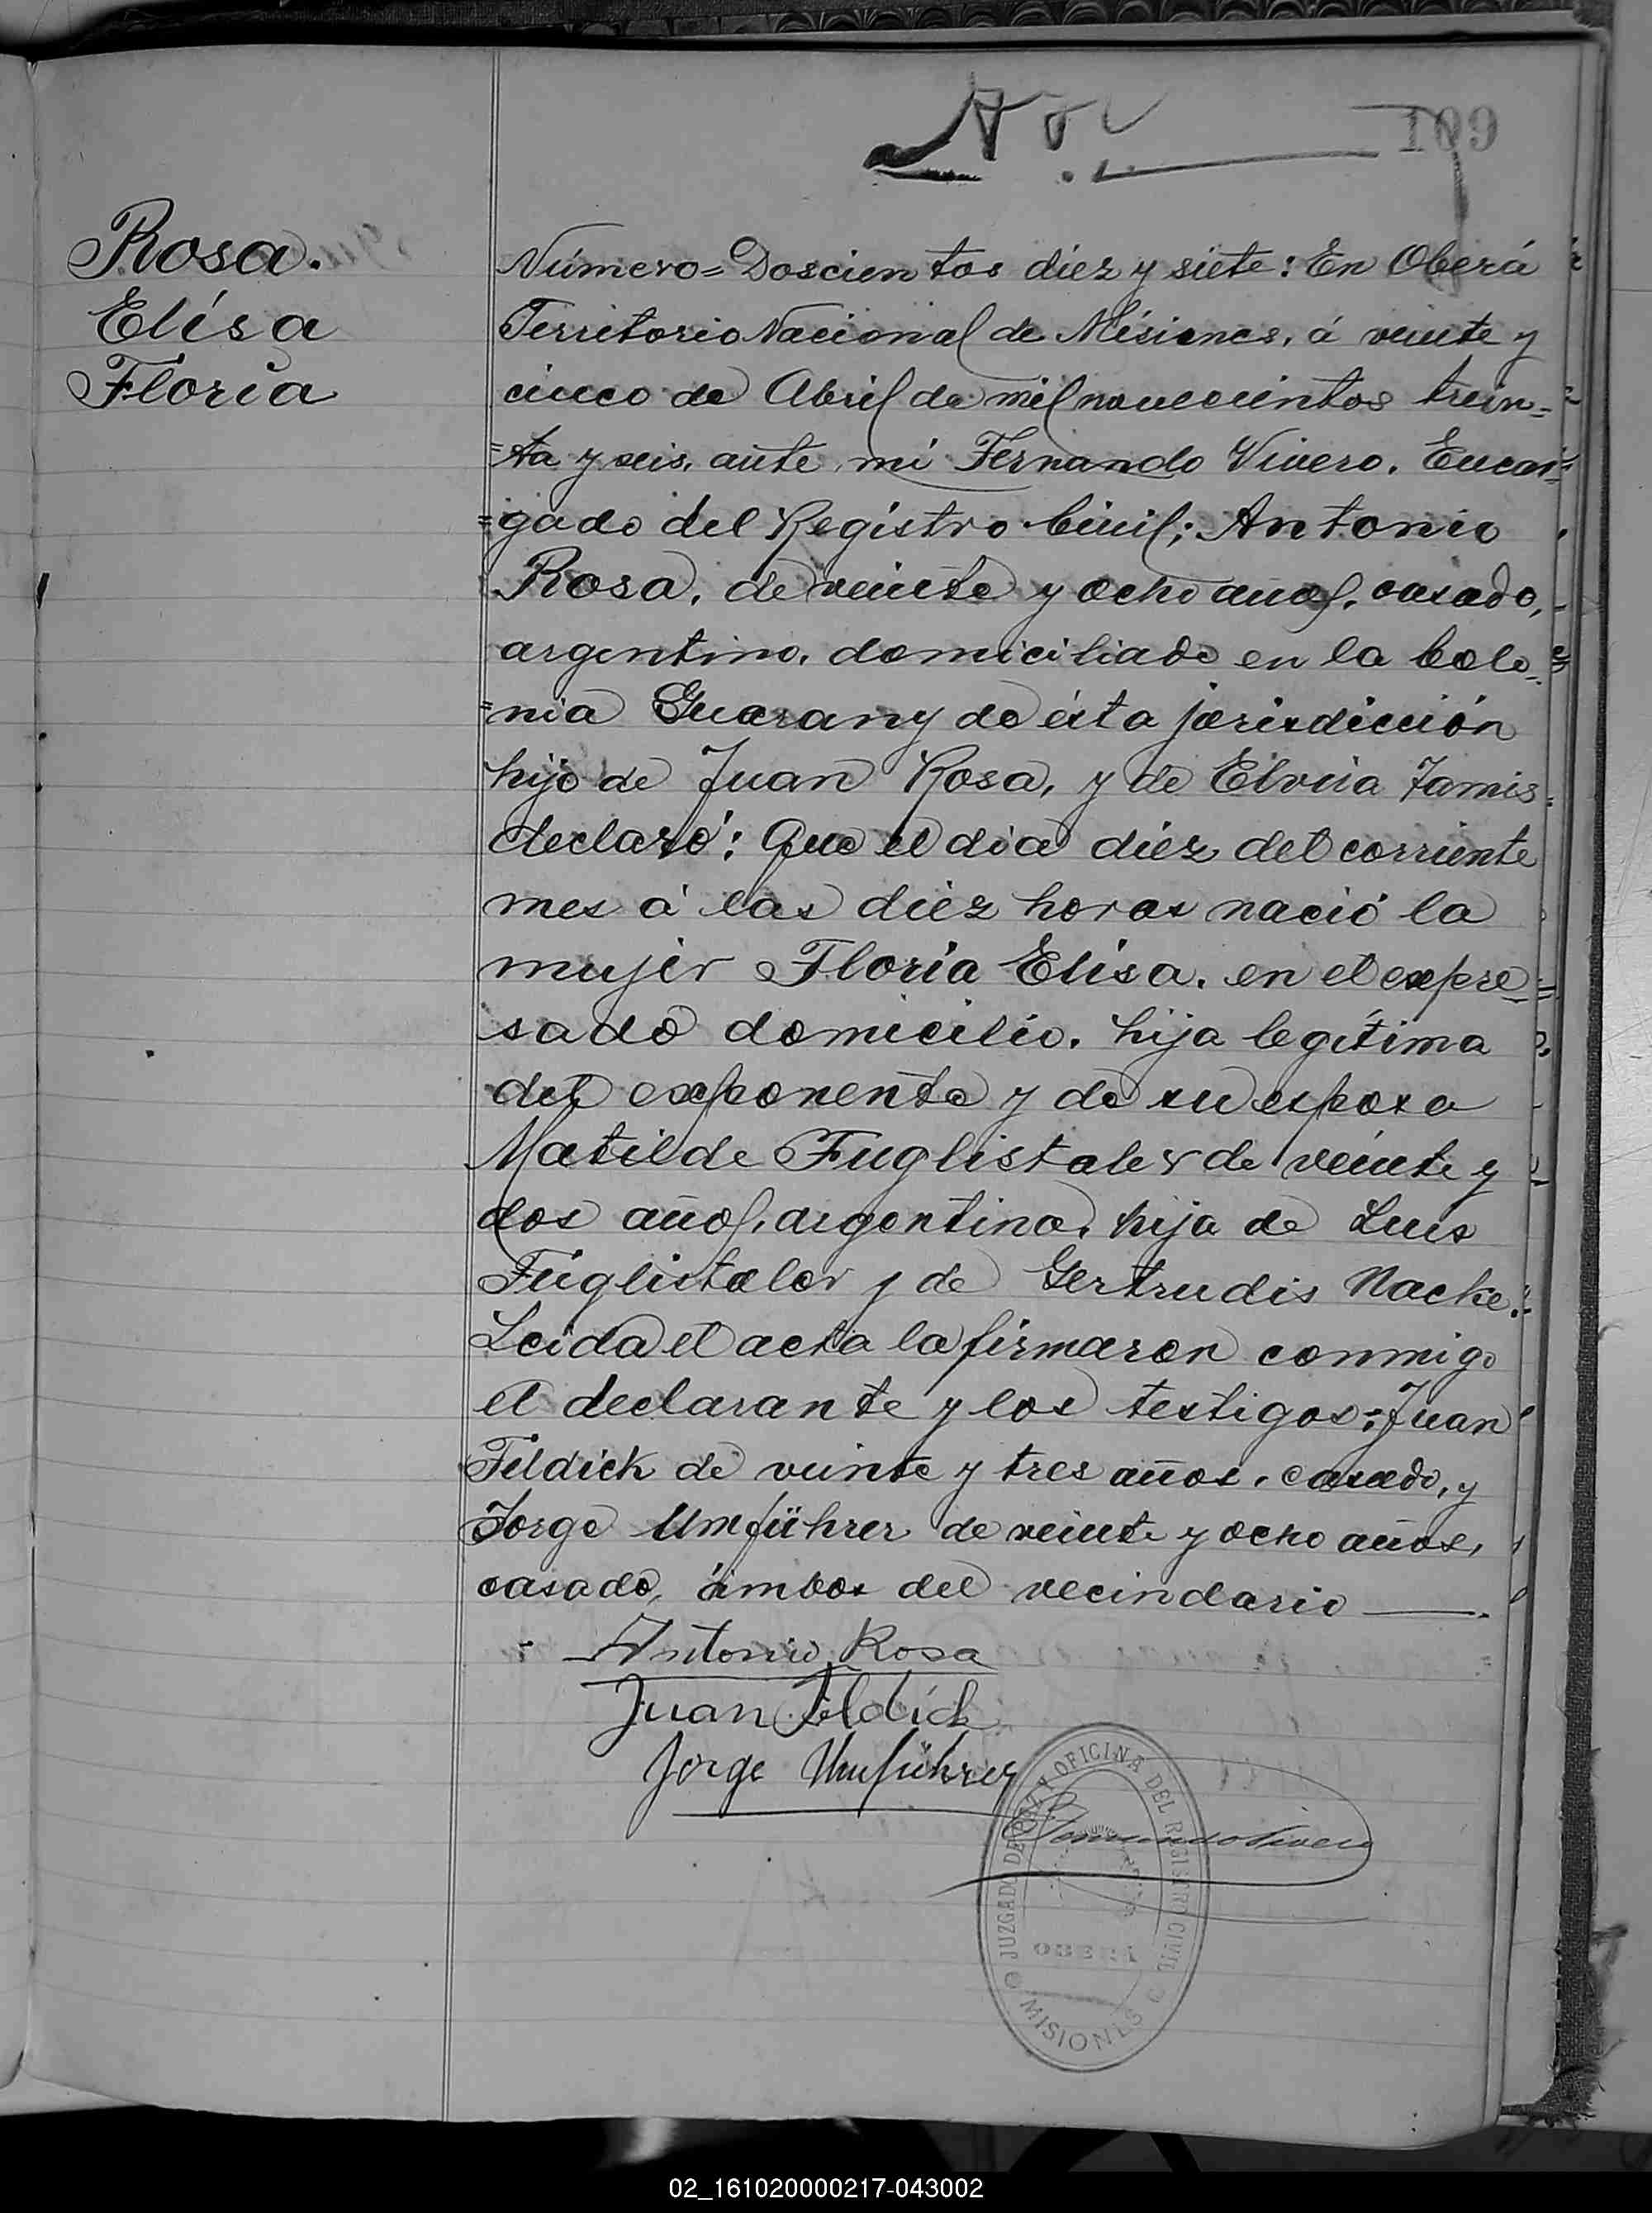 109
Rosa.
Elísa
Floria
Número= Doscientos diez y siete: En Oberá
Territorio Nacional de Misiones, á veinte y
cinco de Abril de mil novecientos trein=
=ta y seis, ante mí Fernando Vivero, Encar=
=gado del Registro Civil; Antonio
Rosa, de veinte y ocho años, casado,
argentino, domiciliado en la Colo=
=nia Guarany de ésta jurisdicción
hijo de Juan Rosa, y de Elvia Tamis
declaró: Que el día diéz del corriente
mes á las diéz horas nació la
mujer Floria Elisa, en el expre=
sado domicilio, hija legítima
del exponente y de su esposa
Matilde Fuglistaler de veinte y
dos años, argentina, hija de Luis
Fuglistaler y de Gertrudis Nacke:
Leida el acta la firmaron conmigo
el declarante y los testigos: Juan
Feldick de veinte y tres años, casado, y
Jorge Umführer de veinte y ocho años,
casado, ámbos del vecindario
Antonio Rosa
Juan Feldick
Jorge Umführer
Fernando Vivero
JUZGADO DE PAZ Y OFICINA DEL REGISTRO CIVIL
OBERA
MISIONES
02_161020000217-043002